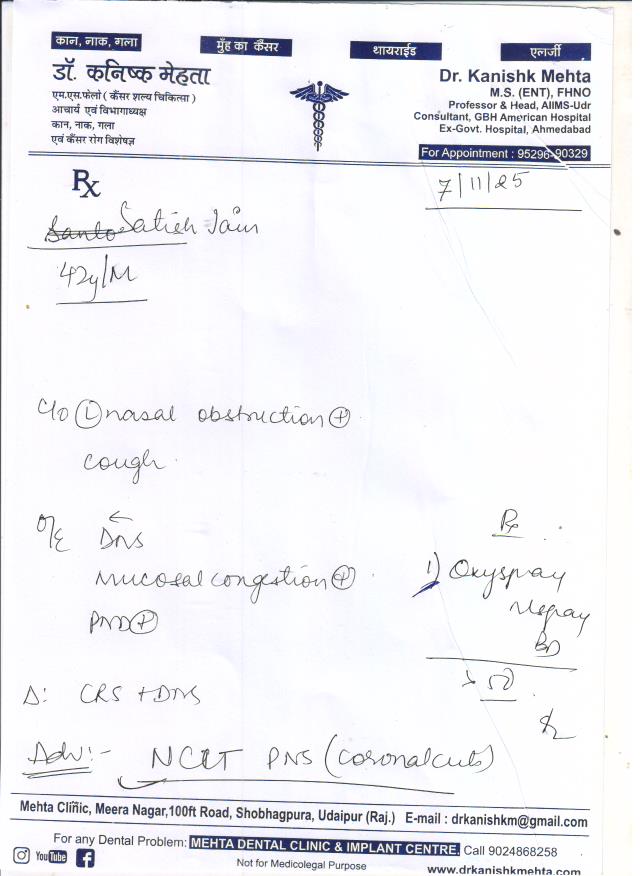 कान, नाक, गला
मुँह का कैंसर
थायराईड
एलर्जी
डॉ. कनिष्क मेहता
एम.एस.फेलो ( कैंसर शल्य चिकित्सा )
आचार्य एवं विभागाध्यक्ष
कान, नाक, गला
एवं कैंसर रोग विशेषज्ञ
Dr. Kanishk Mehta
M.S. (ENT), FHNO
Professor & Head, AIIMS-Udr
Consultant, GBH American Hospital
Ex-Govt. Hospital, Ahmedabad
For Appointment : 95296-90329
Rx
7/11/25
Satish Jain
42y/M
C/o Ⓛ nasal obstruction ⊕
cough
O/E DNS
Mucosal congestion ⊕
PND ⊕
Rx
1) Oxyspray
Nspray
BD
Δ: CRS + DNS
Adv:- NCCT PNS (coronal cuts)
Mehta Clinic, Meera Nagar,100ft Road, Shobhagpura, Udaipur (Raj.) E-mail : drkanishkm@gmail.com
For any Dental Problem: MEHTA DENTAL CLINIC & IMPLANT CENTRE, Call 9024868258
YouTube
Not for Medicolegal Purpose
www.drkanishkmehta.com